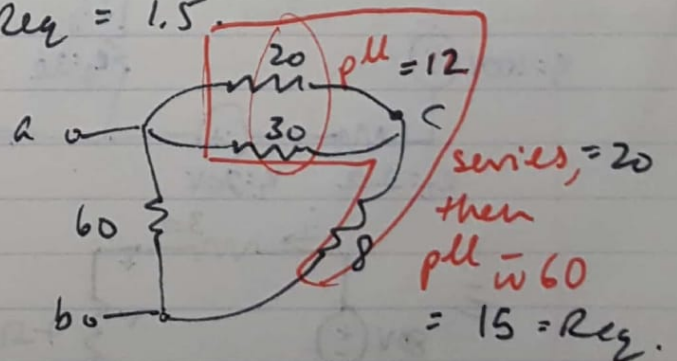 Req = 1.5.
20
pll = 12
a
30
C
series, = 20
60
then
8
pll w 60
b
= 15 = Req.